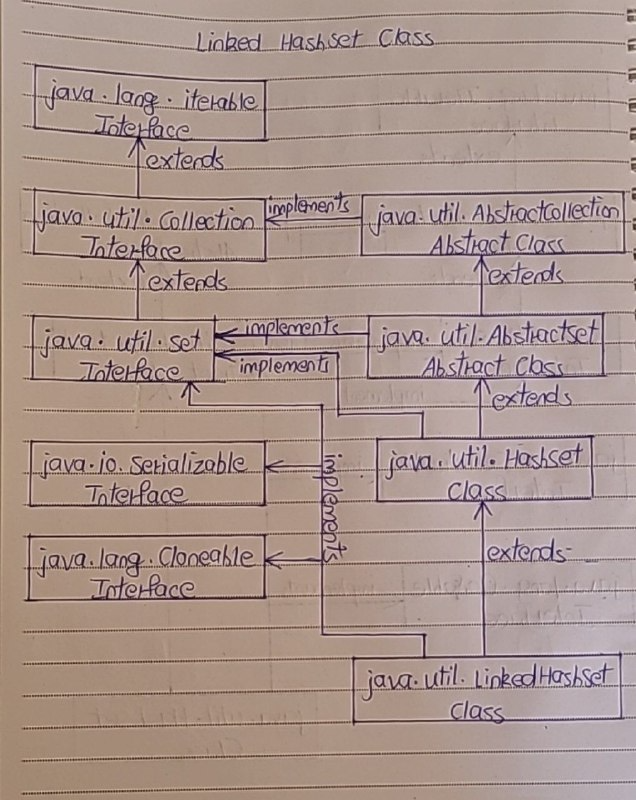 Linked Hashset Class
java.lang.iterable
Interface
extends
java.util.Collection
Interface
implements
java.util.AbstractCollection
Abstract Class
extends
extends
java.util.set
Interface
implements
implements
java.util.Abstractset
Abstract Class
extends
java.io.Serializable
Interface
implements
java.util.Hashset
Class
java.lang.Cloneable
Interface
extends
java.util.LinkedHashset
Class